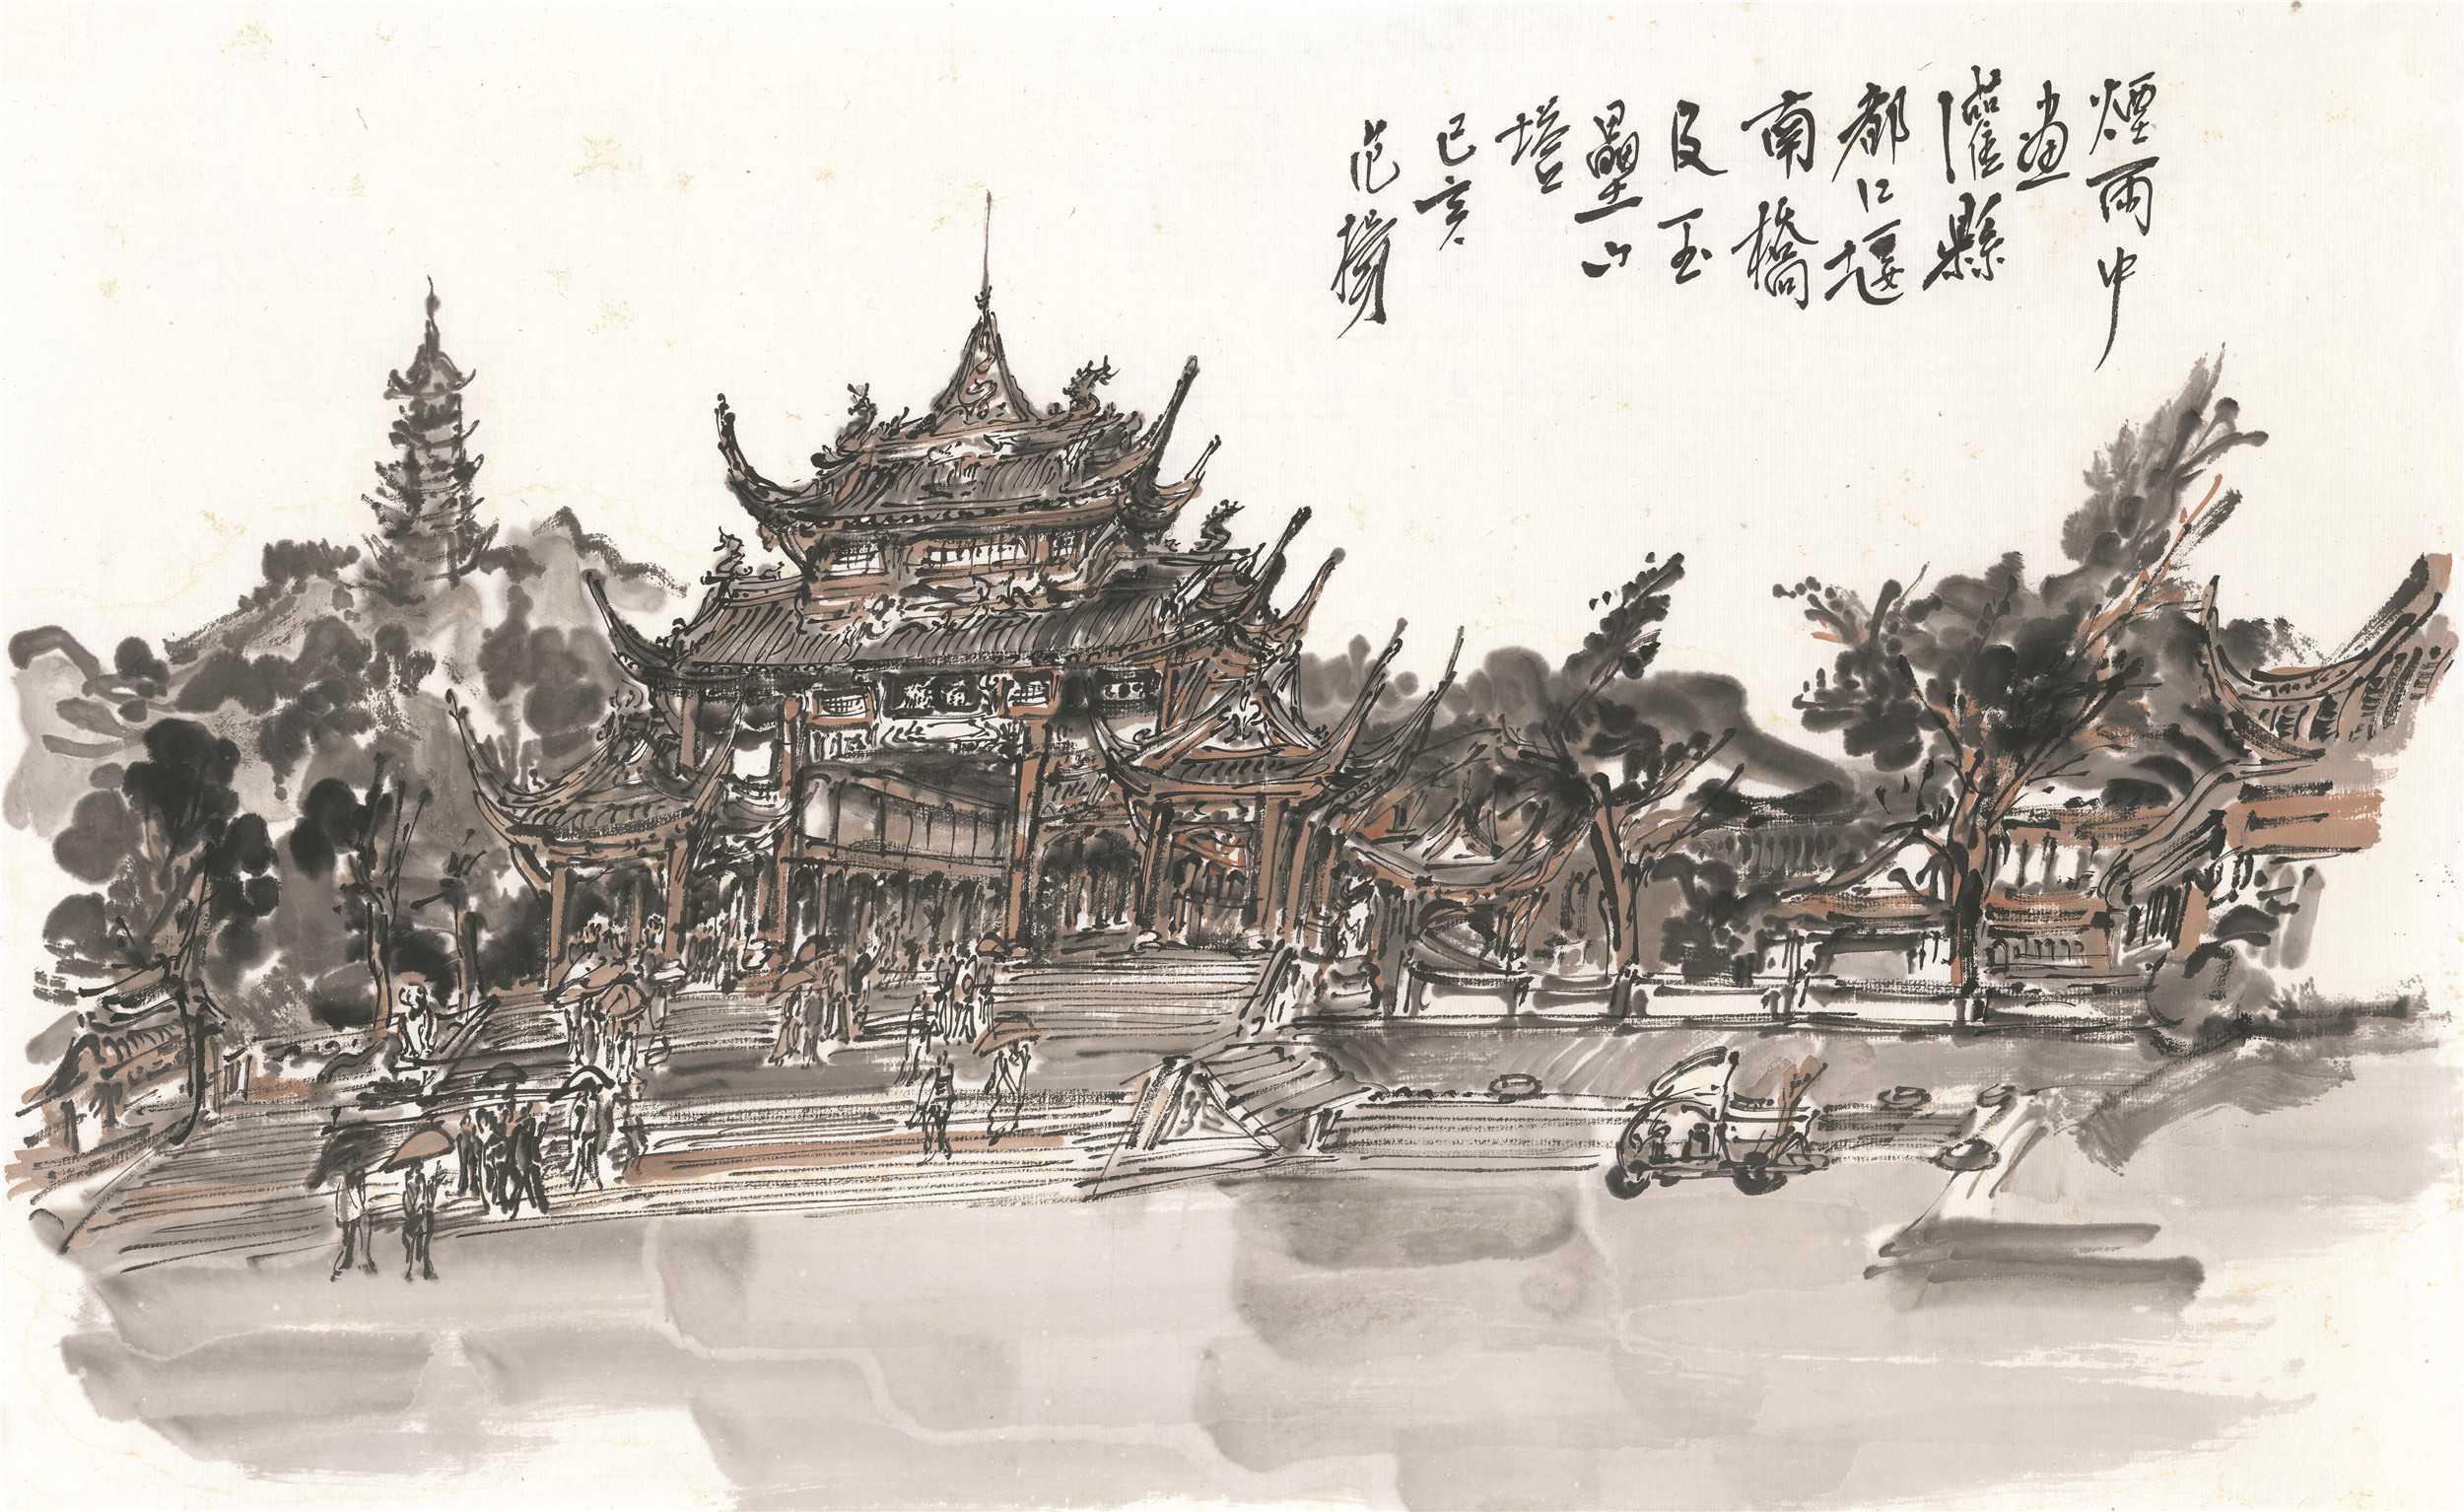 煙雨中
畫
灌縣
都江堰
南橋
及玉
壘山
塔
己亥
范揚